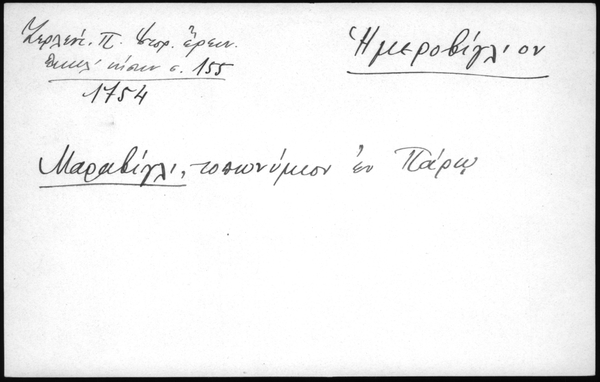 Ζερλέντ. Π. Ιστορ. Ἔρευν.
Ἐκκλ. νήσων σ. 155
1754
Ἡμεροβίγλιον
Μαραβίγλι, τοπωνύμιον ἐν Πάρῳ